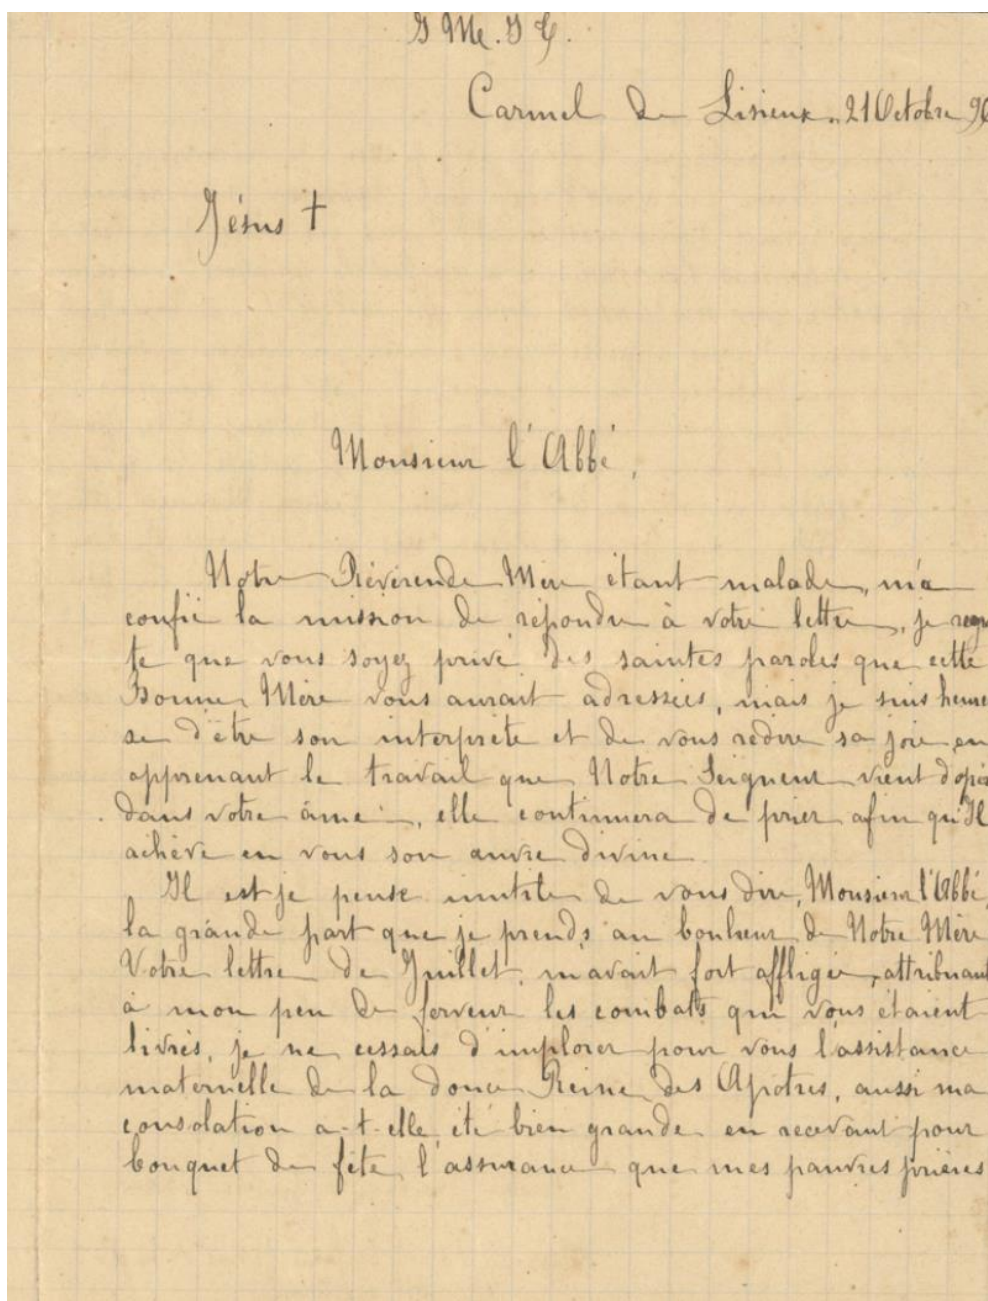 J. M. J. T.
Carmel de Lisieux. 21 Octobre 96
Jésus †
Monsieur l'Abbé,
Notre Révérende Mère étant malade, m'a
confié la mission de répondre à votre lettre, je regr
te que vous soyez privé des saintes paroles que cette
Bonne Mère vous aurait adressées, mais je suis heureu
se d'être son interprète et de vous redire sa joie en
apprenant le travail que Notre Seigneur vient d'opér
dans votre âme, elle continuera de prier afin qu'Il
achève en vous son œuvre divine.
Il est je pense inutile de vous dire, Monsieur l'Abbé,
la grande part que je prends au bonheur de Notre Mère
Votre lettre de Juillet m'avait fort affligée, attribuant
à mon peu de ferveur les combats qui vous étaient
livrés, je ne cessais d'implorer pour vous l'assistance
maternelle de la douce Reine des Apôtres, aussi ma
consolation a-t-elle été bien grande en recevant pour
bouquet de fête l'assurance que mes pauvres prières